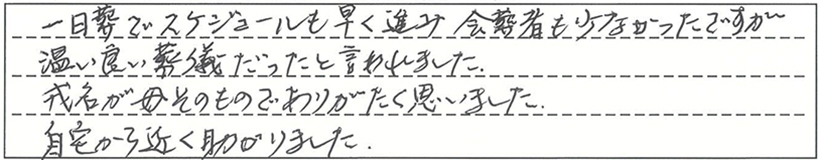 一日葬でスケジュールも早く進み 会葬者も少なかったですが
温い良い葬儀だったと言われました.
戒名が母そのものでありがたく思いました.
自宅から近く助かりました.